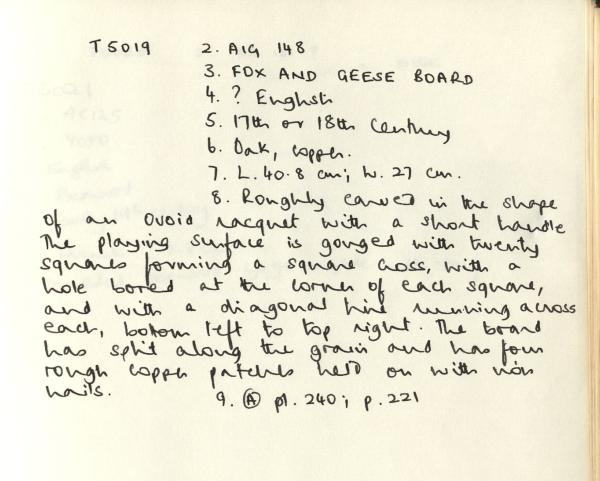 T5019 2. A19 148
3. FOX AND GEESE BOARD
4. ? English
5. 17th or 18th Century
6. Oak, copper.
7. L. 40.8 cm; W. 27 cm.
8. Roughly carved in the shape
of an ovoid racquet with a short handle
The playing surface is gouged with twenty
squares forming a square cross, with a
hole bored at the corner of each square,
and with a diagonal line running across
each, bottom left to top right. The board
has split along the grain and has four
rough copper patches held on with iron
nails. 9. Ⓐ pl. 240; p. 221